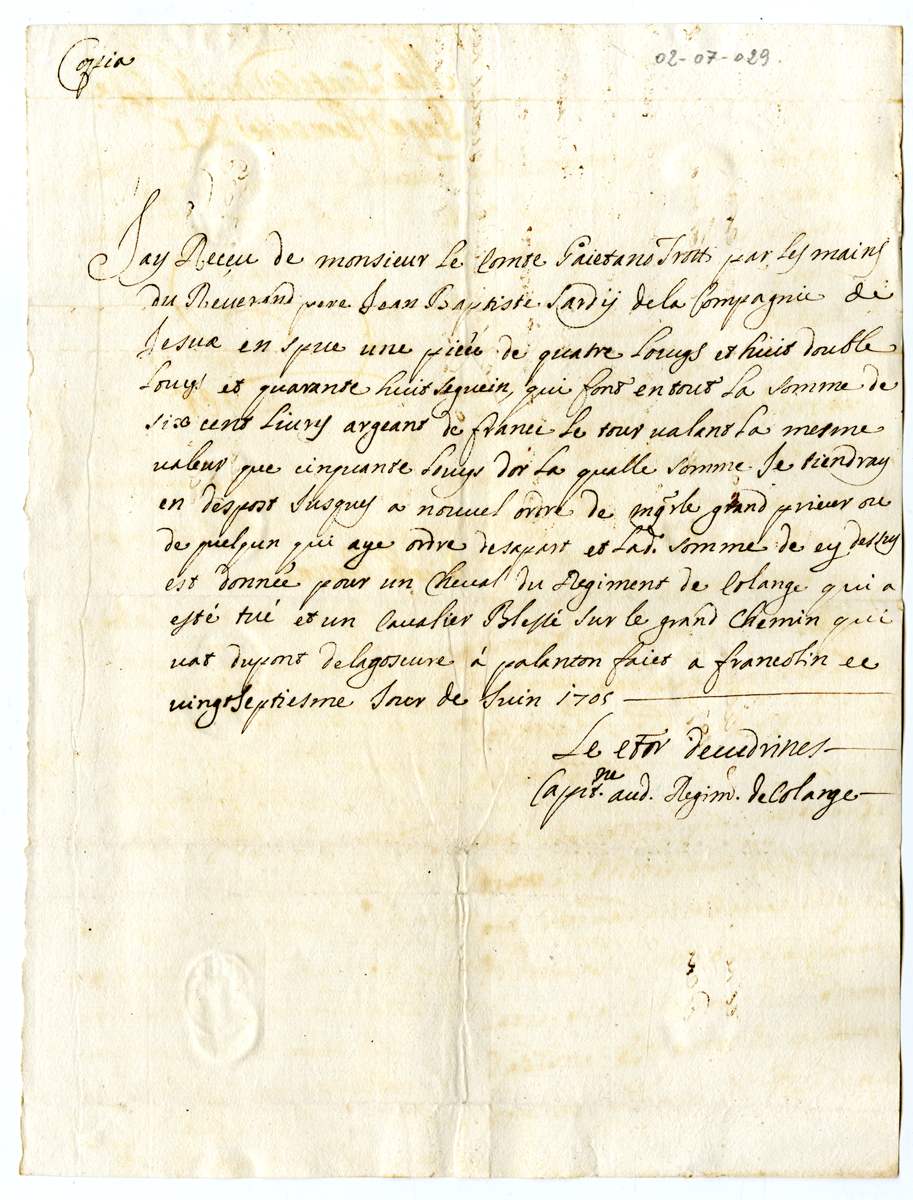 Copia
02-07-029
Jay Reçeu de monsieur Le Comte Gaietano Trotti par Les mains
du Reverand pere Jean Baptiste Sardij de la Compagnie de
Jesux en spue une pieu de quatre Louys et huit double
Louys et quarante huit seguein, qui font en tout La somme de
six cent Livres argeant de france Le tour valant La mesme
valeur que cinquante Louys dor La qualle somme Je tiendray
en despost Jusques a nouvel ordre de mgr le grand prieur ou
de quelqun qui aye ordre desapart et Lad. somme de cy dessus
est donneé pour un Cheval du Regiment de Colange qui a
esté tué et un Cavalier Blessé sur le grand Chemin qui
vat du pont delagoscure á palanton faiet a francolin ce
vingt septiesme Jour de Juin 1705
Le deudrines
Cappit.ne aud. Regim. de Colange